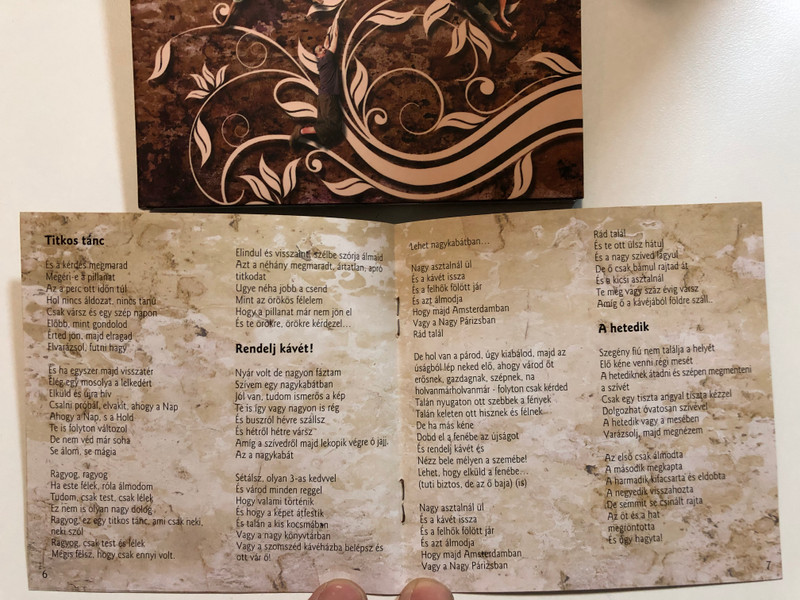 Titkos tánc
És a kérdés megmarad
Megéri-e a pillanat
Az a perc ott időn túl
Hol nincs áldozat, nincs tanú
Csak vársz és egy szép napon
Előbb, mint gondolod
Érted jön, majd elragad
Elvarázsol, futni hagy
És ha egyszer majd visszatér
Elég egy mosolya a lelkedért
Elküld és újra hív
Csalni próbál, elvakít, ahogy a Nap
Ahogy a Nap, s a Hold
Te is folyton változol
De nem véd már soha
Se álom, se mágia
Ragyog, ragyog
Ha este félek, róla álmodom
Tudom, csak test, csak lélek
Ez nem is olyan nagy dolog
Ragyog, ez egy titkos tánc, ami csak neki,
neki szól
Ragyog, csak test és lélek
Mégis félsz, hogy csak ennyi volt.
6
Elindul és visszaing, szélbe szórja álmaid
Azt a néhány megmaradt, ártatlan, apró
titkodat
Ugye néha jobb a csend
Mint az örökös félelem
Hogy a pillanat már nem jön el
És te örökre, örökre kérdezel…
Rendelj kávét!
Nyár volt de nagyon fáztam
Szívem egy nagykabátban
Jól van, tudom ismerős a kép
Te is így vagy nagyon is rég
És buszról hévre szállsz
És hétről hétre vársz
Amíg a szívedről majd lekopik végre ó jajj,
Az a nagykabát
Sétálsz, olyan 3-as kedvvel
És várod minden reggel
Hogy valami történik
És hogy a képet átfestik
És talán a kis kocsmában
Vagy a nagy könyvtárban
Vagy a szomszéd kávéházba belépsz és
ott vár ő!
Lehet nagykabátban…
Nagy asztalnál ül
És a kávét issza
És a felhők fölött jár
És azt álmodja
Hogy majd Amsterdamban
Vagy a Nagy Párizsban
Rád talál
De hol van a párod, úgy kiabálod, majd az
úságból lép neked elő, ahogy várod őt
erősnek, gazdagnak, szépnek, na
holvanmárholvanmár - folyton csak kérded
Talán nyugaton ott szebbek a fények
Talán keleten ott hisznek és félnek
De ha más kéne
Dobd el a fenébe az újságot
És rendelj kávét és
Nézz bele mélyen a szemébe!
Lehet, hogy elküld a fenébe…
(tuti biztos, de az ő baja) (is)
Nagy asztalnál ül
És a kávét issza
És a felhők fölött jár
És azt álmodja
Hogy majd Amsterdamban
Vagy a Nagy Párizsban
Rád talál
És te ott ülsz hátul
És a nagy szíved lágyul
De ő csak bámul rajtad át
És a kicsi asztalnál
Te még vagy száz évig vársz
Amíg ő a kávéjából földre száll…
A hetedik
Szegény fiú nem találja a helyét
Elő kéne venni régi mesét
A hetediknek átadni és szépen megmenteni
a szívét
Csak egy tiszta angyal tiszta kézzel
Dolgozhat óvatosan szívével
A hetedik vagy a mesében
Varázsolj, majd megnézem
Az első csak álmodta
A második megkapta
A harmadik kifacsarta és eldobta
A negyedik visszahozta
De semmit se csinált rajta
Az öt és a hat
megtontotta
És úgy hagyta!
7